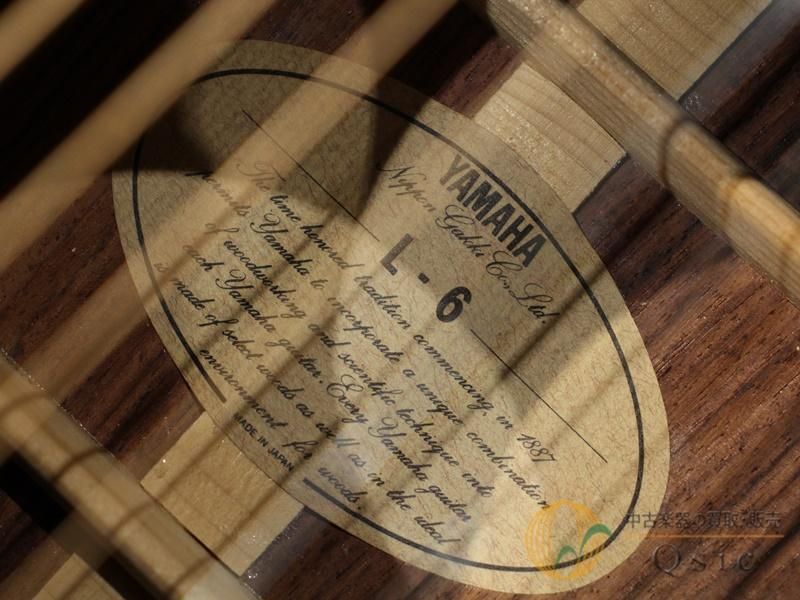 YAMAHA
Nippon Gakki Co., Ltd.
L - 6
The time honored tradition commencing in 1887
permits Yamaha to incorporate a unique combination
of woodworking and scientific technique into
each Yamaha guitar. Every Yamaha guitar
is made of select woods as well as in the ideal
environment for woods.
MADE IN JAPAN
中古楽器の買取・販売
Qsic